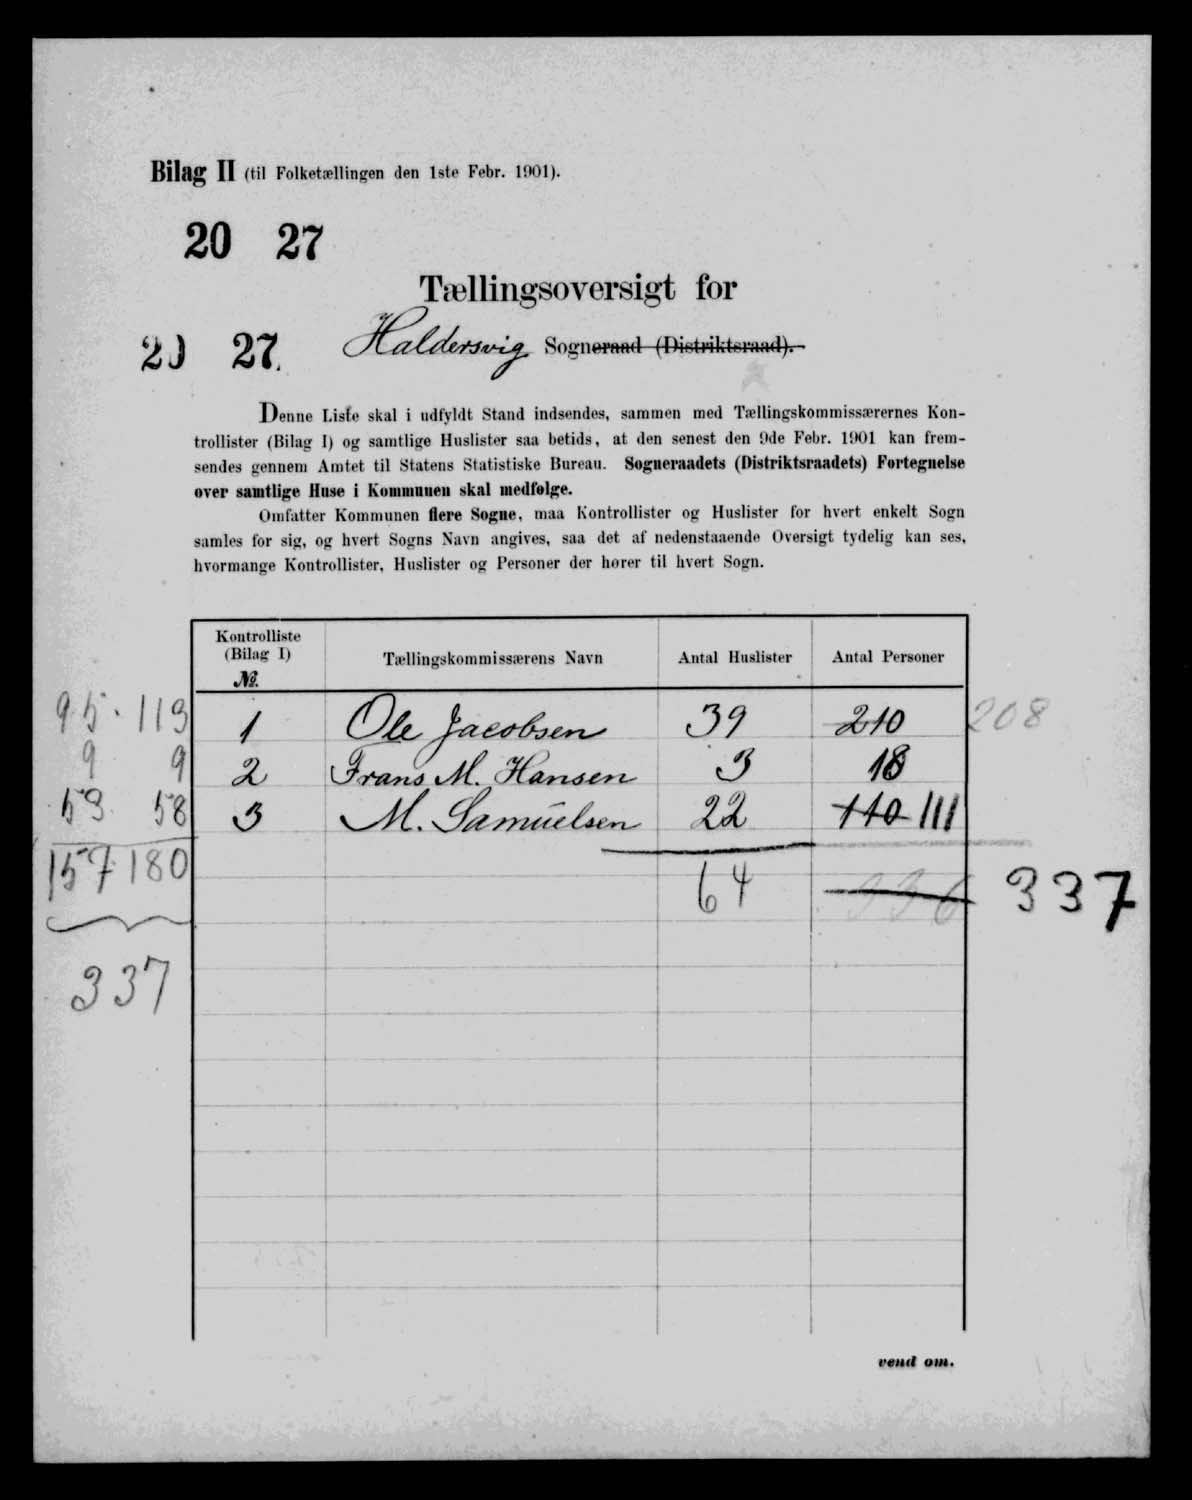 Bilag II (til Folketællingen den 1ste Febr. 1901).
20 27
Tællingsoversigt for
20 27.
Haldersvig Sogneraad (Distriktsraad).
Denne Liste skal i udfyldt Stand indsendes, sammen med Tællingskommissærernes Kon-
trollister (Bilag I) og samtlige Huslister saa betids, at den senest den 9de Febr. 1901 kan frem-
sendes gennem Amtet til Statens Statistiske Bureau. Sogneraadets (Distriktsraadets) Fortegnelse
over samtlige Huse i Kommunen skal medfølge.
Omfatter Kommunen flere Sogne, maa Kontrollister og Huslister for hvert enkelt Sogn
samles for sig, og hvert Sogns Navn angives, saa det af nedenstaaende Oversigt tydelig kan ses,
hvormange Kontrollister, Huslister og Personer der hører til hvert Sogn.
Kontrolliste (Bilag I) No. Tællingskommissærens Navn Antal Huslister Antal Personer
95 . 113 1 Ole Jacobsen 39 210 208
9 9 2 Frans M. Hansen 3 18
53 58 3 M. Samuelsen 22 110 111
157 180 64 336 337
337
vend om.